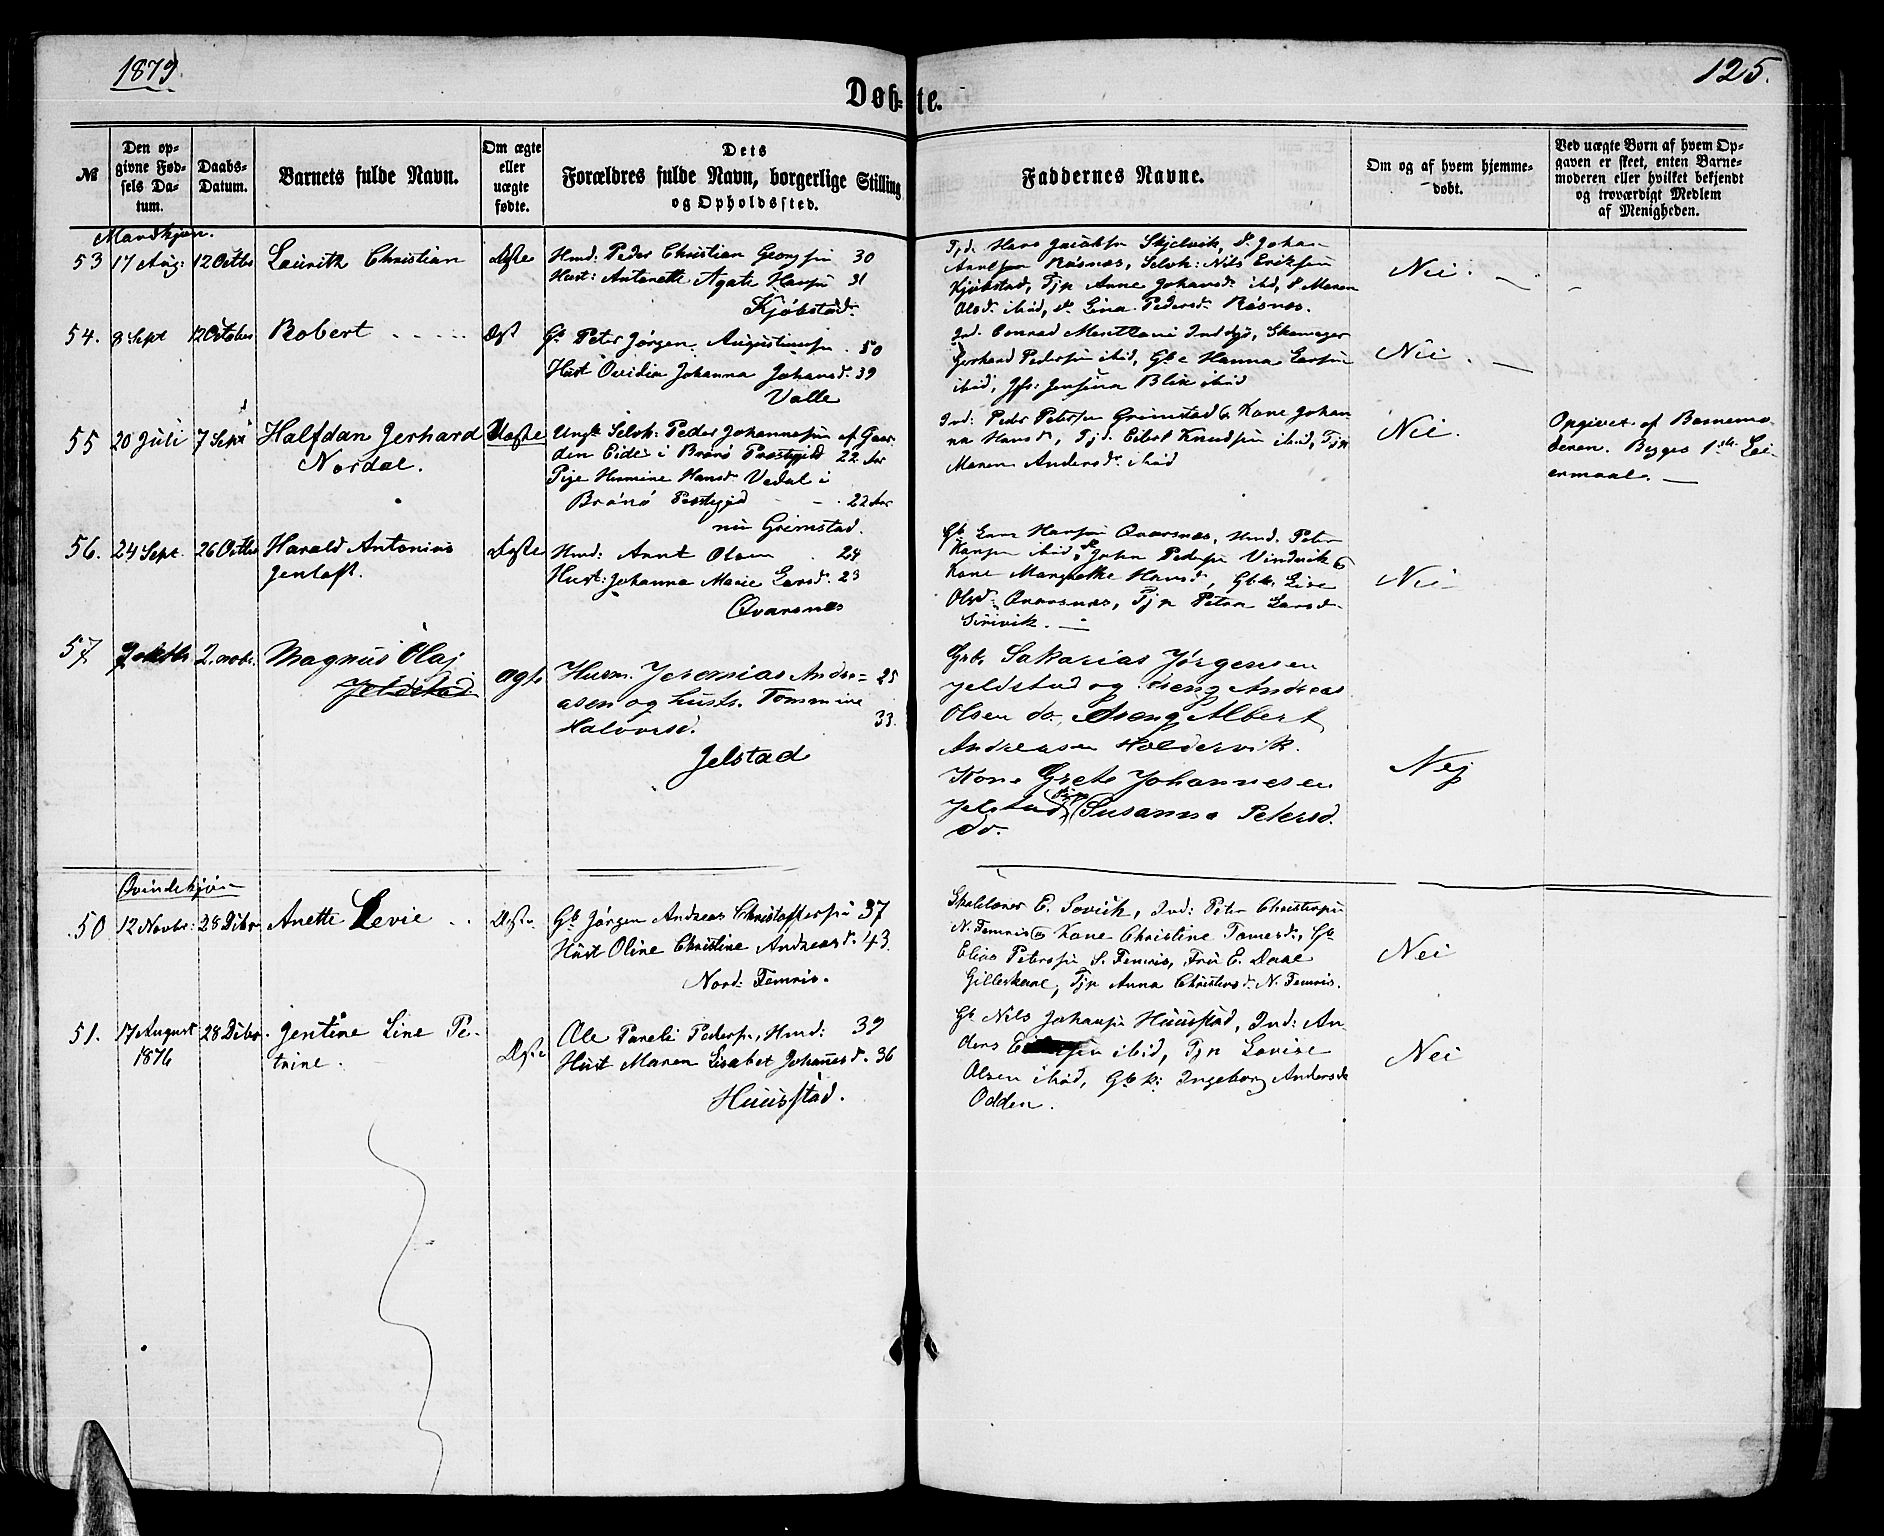 1879.
125.
Døb-te.
№
Den op-
givne Fød-
sels Da-
tum.
Daabs-
Datum.
Barnets fulde Navn.
Om ægte
eller
uægte
fødte.
Dets
Forældres fulde Navn, borgerlige Stilling
og Opholdssted.
Faddernes Navne.
Om og af hvem hjemme-
døbt.
Ved uægte Børn af hvem Op-
gaven er skeet, enten Barne-
moderen eller hvilket bekjendt
og troværdigt Medlem
af Menigheden.
Mandkjøn.
53 17 Aug: 12 Octbr Lauritz Christian Ægte
Hmd: Peder Christian Georgsen 30
Hust: Antonette Agate Hansd 31
Kjøbstad.
Tjd: Hans Jacobsen Skjelvik, Johan
Arntsen Røsnæs, Selvk: Nils Eriksen
Kjøbstad, Tjp Anne Johansd. ibid, Maren
Olsd. ibid, Lina Pedersd. Røsnæs.
Nei.
54. 9 Sept 12 October Robert Ægt
Gb Peter Jørgen Augustinusen 50
Hust Ovidia Johanna Johansd. 39
Valle
Ind. Conrad Inddyr, Skomager
Gerhard Pedersen ibid, Gbk Hanna Larsen
ibid, Jfr: Jensina Blix ibid
Nei.
55 20 Juli 7 Sept Halfdan Gerhard
Nordal.
Uægte
Ungk: Selvk: Peder Johannesen af Gaar-
den Eide i Brønø Præstegjeld 22 Aar
Pige Hermine Hansd. Vedal i
Brønø Prstgjd 22 Aar
nu Grimstad.
Ind: Peder Petersen Grimstad & Kone Johan
na Hansd, Tjd: Eilert Knudsen ibid, Tjp
Maren Andersd. ibid
Nei.
Opgivet af Barnemo-
deren. Begges 1ste Lei-
ermaal.
56. 24 Sept. 26 Octbr Harald Antonius
Jentoft.
Ægte
Hmd: Arnt Olsen 24
Hust: Johanna Marie Larsd. 23
Qvarsnæs
Gb Lars Hansen Qvarsnæs, Hmd. Peter
Hansen ibid, John Pedersen Vindvik &
Kone Margrethe Hansd, Gbk. Lise
Olsd. Qvarsnæs, Tjp Petra Larsd.
Sirivik.
Nei
57 2. novbr. Magnus Olaj
Jeldstad
ægte
Husm. Jeremias Andre= 25
asen og hustr. Tommine
Halvorsd. 33.
Jelstad
Grb. Sakarias Jørgensen
jeldstad og dreng Andreas
Olsen do, dreng Albert
Andreasen Holdervik.
Kone Grete Johannesen
jelstad Pige Susanna Petersd.
do.
Nej
Qvindekjøn
50 12 Novbr: 28 Dcbr. Anette Levie Ægte
Gb Jørgen Andreas Christoffersen 37
Hust Oline Christine Andreasd. 43
Nord: Femris.
Skolelærer E. Sovick, Ind: Peter Christensen
N. Femris & Kone Christine Tomesd., Gb
Elias Petersen S. Femris, Fru E. Daae
Gilleskaal, Tjp Anna Christensd. N. Femris.
Nei
51. 17 August
1876
28 Dcbr. Jentine Line Pe-
trine.
Ægte
Ole Pareli Pedersen, Hmd: 39
Hust Maren Lisabet Johansd. 36
Huusstad.
Gb Nils Johansen Huusstad, Ind: An-
ders ibid, Tjp Lovise
Olsen ibid, Gbk: Ingeborg Andersd.
Odden.
Nei